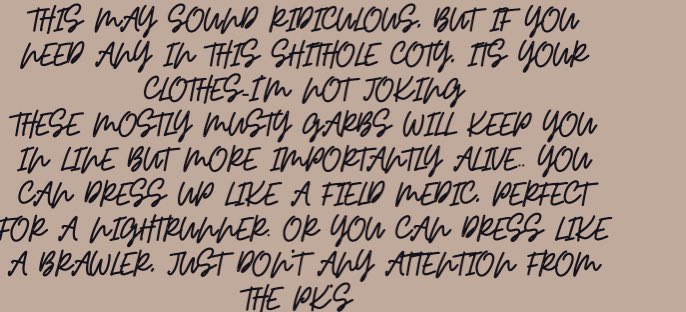 THIS MAY SOUND RIDICULOUS. BUT IF YOU
NEED ANY IN THIS SHITHOLE COTY. ITS YOUR
CLOTHES-I'M NOT JOKING
THESE MOSTLY MUSTY GARBS WILL KEEP YOU
IN LINE BUT MORE IMPORTANTLY ALIVE.. YOU
CAN DRESS UP LIKE A FIELD MEDIC. PERFECT
FOR A NIGHTRUNNER. OR YOU CAN DRESS LIKE
A BRAWLER. JUST DON'T ANY ATTENTION FROM
THE PK'S